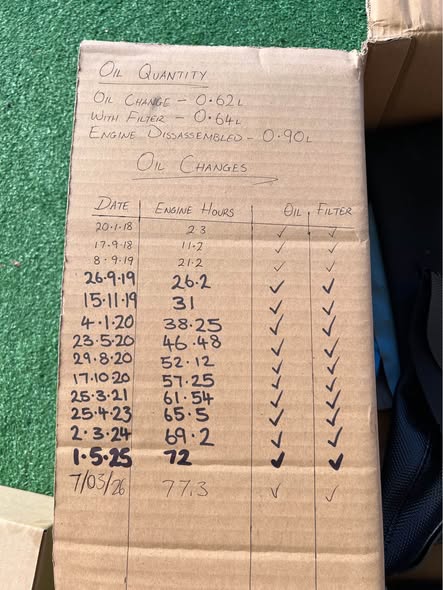 OIL QUANTITY
OIL CHANGE - 0.62L
WITH FILTER - 0.64L
ENGINE DISSASSEMBLED - 0.90L
OIL CHANGES
DATE ENGINE HOURS OIL FILTER
20.1.18 2.3 ✓ ✓
17.9.18 11.2 ✓ ✓
8.9.19 21.2 ✓ ✓
26.9.19 26.2 ✓ ✓
15.11.19 31 ✓ ✓
4.1.20 38.25 ✓ ✓
23.5.20 46.48 ✓ ✓
29.8.20 52.12 ✓ ✓
17.10.20 57.25 ✓ ✓
25.3.21 61.54 ✓ ✓
25.4.23 65.5 ✓ ✓
2.3.24 69.2 ✓ ✓
1.5.25 72 ✓ ✓
7/03/26 77.3 ✓ ✓